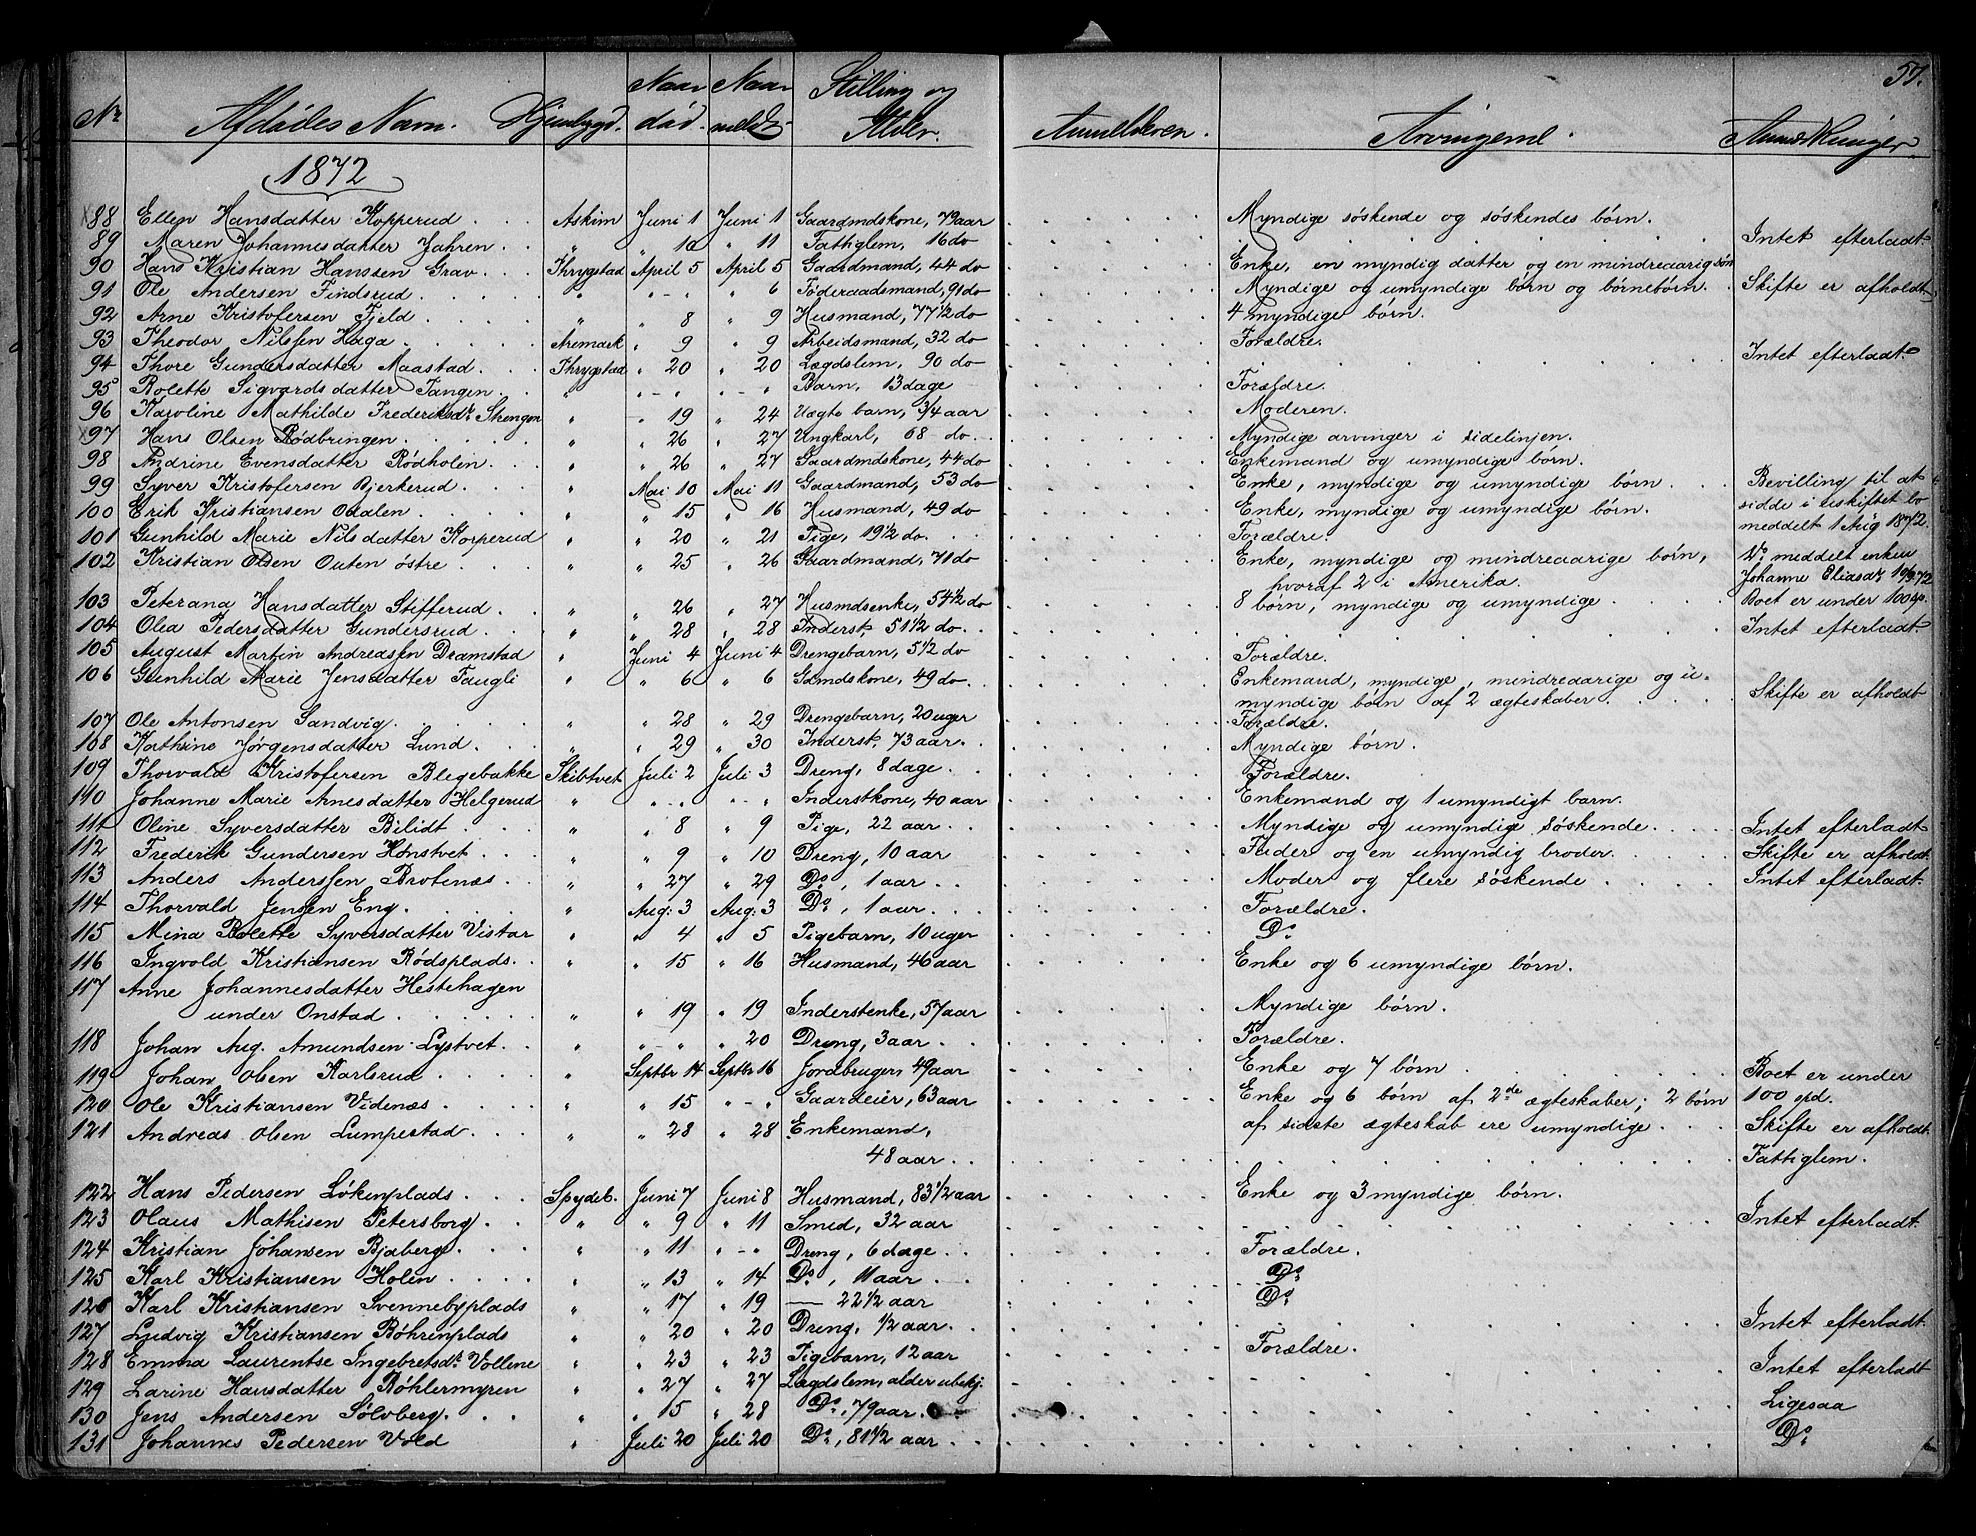 57.
Nr Afdødes Navn. Hjembygd. Naar død. Naar meldt Stilling og Alder. Anmelderen. Arvingerne. Anmærkninger
1872
88 Ellen Hansdatter Kopperud . . . Askim Juni 1 Juni 1 Gaardmdskone, 79 aar Myndige søskende og søskendes børn.
89 Maren Johannesdatter Jahren . . " " 10 " 11 Fattiglem, 16 do Intet efterladt
90 Hans Kristian Hanssen Grav . . . Thrygstad April 5 April 5 Gaardmand, 44 do Enke, en myndig datter og en mindreaarig søn
91 Ole Andersen Findsrud . . . " " - " " 6 Föderaadsmand, 91 do Myndige og umyndige børn og børnebørn. Skifte er afholdt
92 Arne Kristofersen Fjeld . . . " " 8 " 9 Husmand, 77 1/2 do 4 myndige børn.
93 Theodor Nilssen Haga . . . Aremark " 9 " 9 Arbeidsmand, 32 do Forældre.
94 Thore Gundersdatter Maastad . . Thrygstad " 20 " 20 Lægdslem, 90 do Intet efterladt
95 Bolette Sigvardsdatter Tangen . . " " - " " - " Barn, 13 dage Forældre.
96 Karoline Mathilde Frederiksdr Skengen " - 19 " 24 Uægte barn, 3/4 aar Moderen.
97 Hans Olsen Rødbringen . . . " " 26 " 27 Ungkarl, 68 do . . Myndige arvinger i sidelinjen.
98 Andrine Evensdatter Rødholen . . " " 26 " 27 Gaardmdskone, 44 do Enkemand og umyndige børn.
99 Syver Kristofersen Bjerkerud . . " Mai 10 Mai 11 Gaardmand, 53 do Enke, myndige og umyndige børn . Bevilling til at
100 Erik Kristiansen Odalen . . . " " 15 " 16 Husmand, 49 do Enke, myndige og umyndige børn. sidde i uskiftet bo
101 Gunhild Marie Nilsdatter Korperud " " 20 " 21 Pige, 19 1/2 do. Forældre. meddelt 1 Aug 1872.
102 Kristian Olsen Outen østre . . . " " 25 " 26 Gaardmand, 71 do Enke, myndige og mindreaarige børn, Do meddelt enken
hvoraf 2 i Amerika. Johanne Eliasdr 19/9 72
103 Peterana Hansdatter Stifferud . . " " 26 " 27 Husmdsenke, 54 1/2 do 8 børn, myndige og umyndige Boet er under 100 spd.
104 Olea Pedersdatter Gundersrud . . " " 28 " 28 Inderst, 51 1/2 do . . Intet efterladt
105 August Martin Andreassen Dramstad " Juni 4 Juni 4 Drengebarn, 5 1/2 do Forældre.
106 Gunhild Marie Jensdatter Faugli " " 6 " 6 Gmdskone, 49 do . . Enkemand, myndige, mindreaarige og u-
myndige børn af 2 ægteskaber. Skifte er afholdt
107 Ole Antonsen Sandvig . . . " " 28 " 29 Drengebarn, 20 uger Forældre.
108 Kathrine Jørgensdatter Lund . . " " 29 " 30 Inderst, 73 aar . Myndige børn.
109 Thorvald Kristofersen Blegebakke Skibtvet Juli 2 Juli 3 Dreng, 8 dage . . Forældre.
110 Johanne Marie Arnesdatter Helgerud " " - " " - " Inderstkone, 40 aar Enkemand og 1 umyndigt barn.
111 Oline Syversdatter Bilidt . . . " " 8 " 9 Pige, 22 aar . . Myndige og umyndige søskende . . Intet efterladt
112 Frederik Gundersen Hønstvet . . " " 9 " 10 Dreng, 10 aar Fader og en umyndig broder. Skifte er afholdt
113 Anders Anderssen Brotenæs . . " " 27 " 29 Do, 1 aar . . Moder og flere søskende . . Intet efterladt
114 Thorvald Jensen Eng . . . " Aug: 3 Aug: 3 Do, 1 aar . . Forældre.
115 Mina Bolette Syversdatter Vistar " " 4 " 5 Pigebarn, 10 uger Do
116 Ingvold Kristiansen Rødsplads . . " " 15 " 16 Husmand, 46 aar Enke og 6 umyndige børn.
117 Anne Johannesdatter Hestehagen
under Onstad . . . " " 19 " 19 Inderstenke, 57 aar Myndige børn.
118 Johan Aug. Amundsen Lystvet . . " " " " 20 Dreng, 3 aar . . Forældre.
119 Johan Olsen Karlsrud . . . " Septbr 14 Septbr 16 Jordbruger, 49 aar Enke og 7 børn Boet er under
120 Ole Kristiansen Videnæs . . . " " 15 " - " Gaardeier, 63 aar Enke og 6 børn af 2de ægteskaber; 2 børn 100 spd.
121 Andreas Olsen Lumpestad . . . " " 28 " 28 Enkemand, af sidste ægteskab ere umyndige . . Skifte er afholdt.
48 aar . . Fattiglem.
122 Hans Pedersen Løkenplads . . . Spydeb. Juni 7 Juni 8 Husmand, 83 1/2 aar Enke og 3 myndige børn.
123 Olaus Mathisen Petersborg . . " " 9 " 11 Smed, 32 aar Intet efterladt
124 Kristian Johansen Bjaberg . . " " 11 " - " Dreng, 6 dage . . Forældre.
125 Karl Kristiansen Holen . . . " " 13 " 14 Do, 11 aar . . Do
126 Karl Kristiansen Svennebyplads " " 17 " 19 — 22 1/2 aar Do
127 Ludvig Kristiansen Bøhrenplads " " 20 " 20 Dreng, 1/2 aar . . Intet efterladt
128 Emma Laurentse Ingebretsdr Vollene " " 23 " 23 Pigebarn, 12 aar Forældre.
129 Larine Hansdatter Bøhlermyren " " 27 " 27 Lægdslem, alder ubekj. Intet efterladt
130 Jens Andersen Sølvberg . . . " " 15 " 28 Do, 79 aar . Ligesaa
131 Johannes Pedersen Vold " Juli 20 Juli 20 Do, 81 1/2 aar . . Do